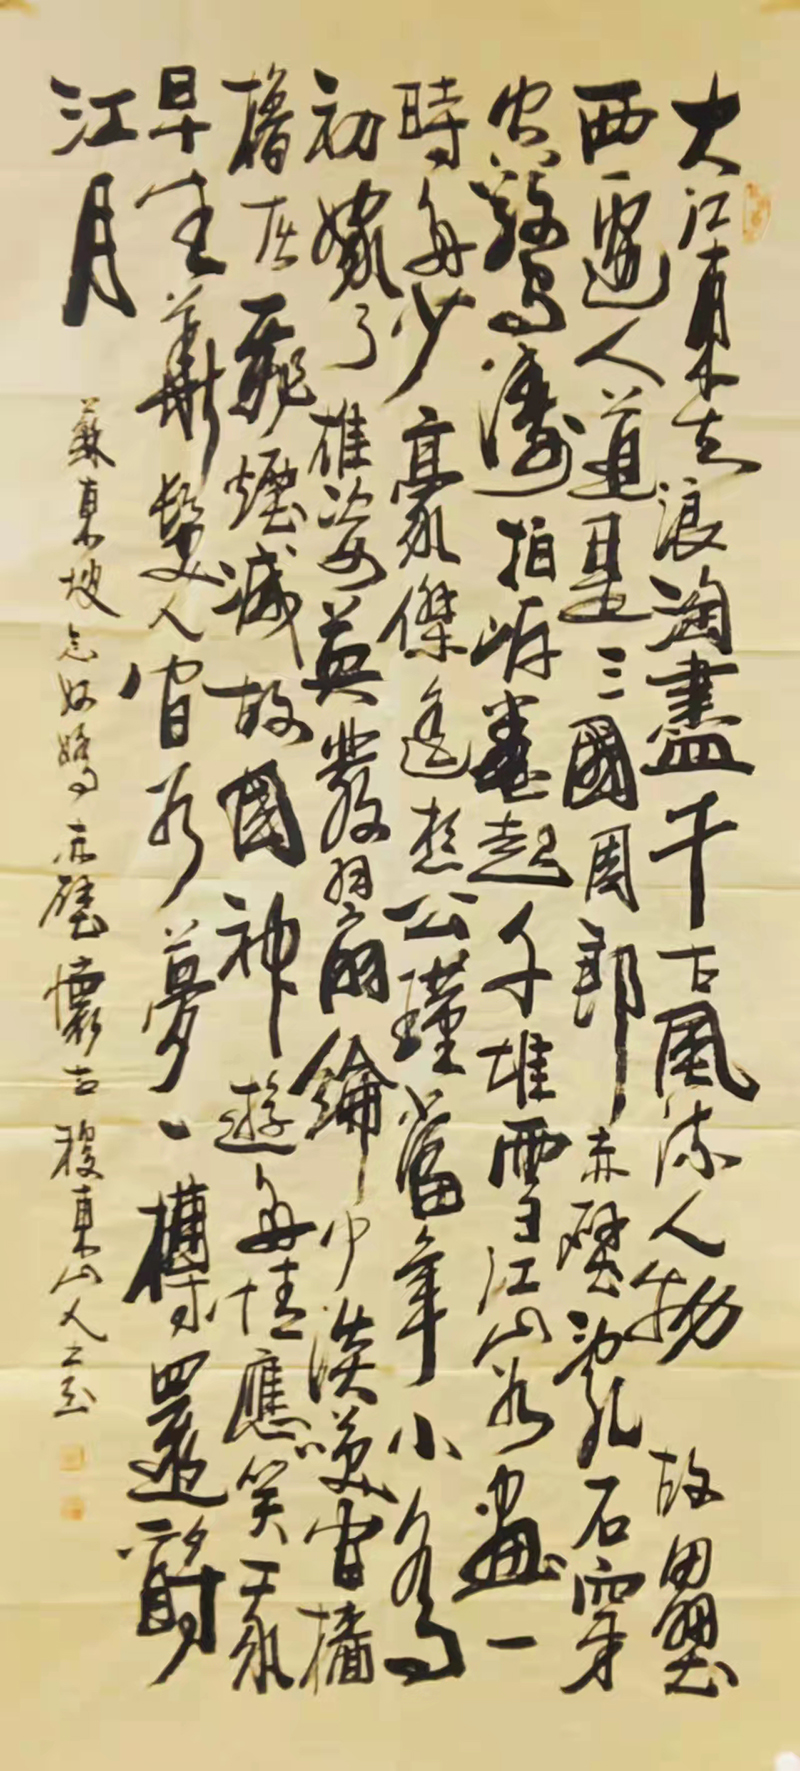 大江東去浪淘盡千古風流人物故壘
西邊人道是三國周郎赤壁亂石穿
空驚濤拍岸卷起千堆雪江山如畫一
時多少豪傑遙想公瑾當年小喬
初嫁了雄姿英發羽扇綸巾談笑間檣
櫓灰飛煙滅故國神遊多情應笑我
早生華髮人間如夢一樽還酹
江月
蘇東坡念奴嬌赤壁懷古稷東山人